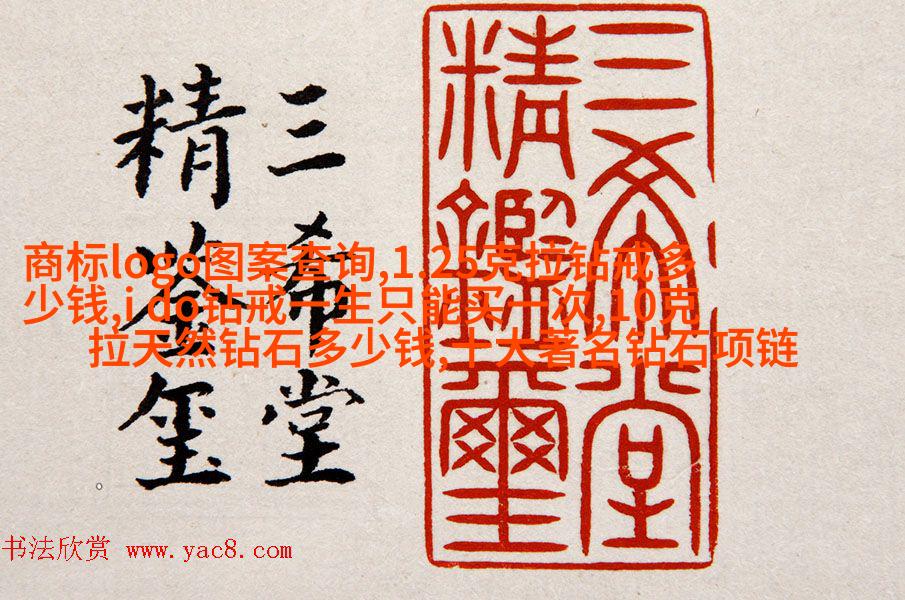 三希堂
精鑑璽
三希堂
精鉴玺
商标logo图案查询,1.25克拉钻戒多
少钱,i do钻戒一生只能买一次,10克
拉天然钻石多少钱,十大著名钻石项链
书法欣赏 www.yac8.com